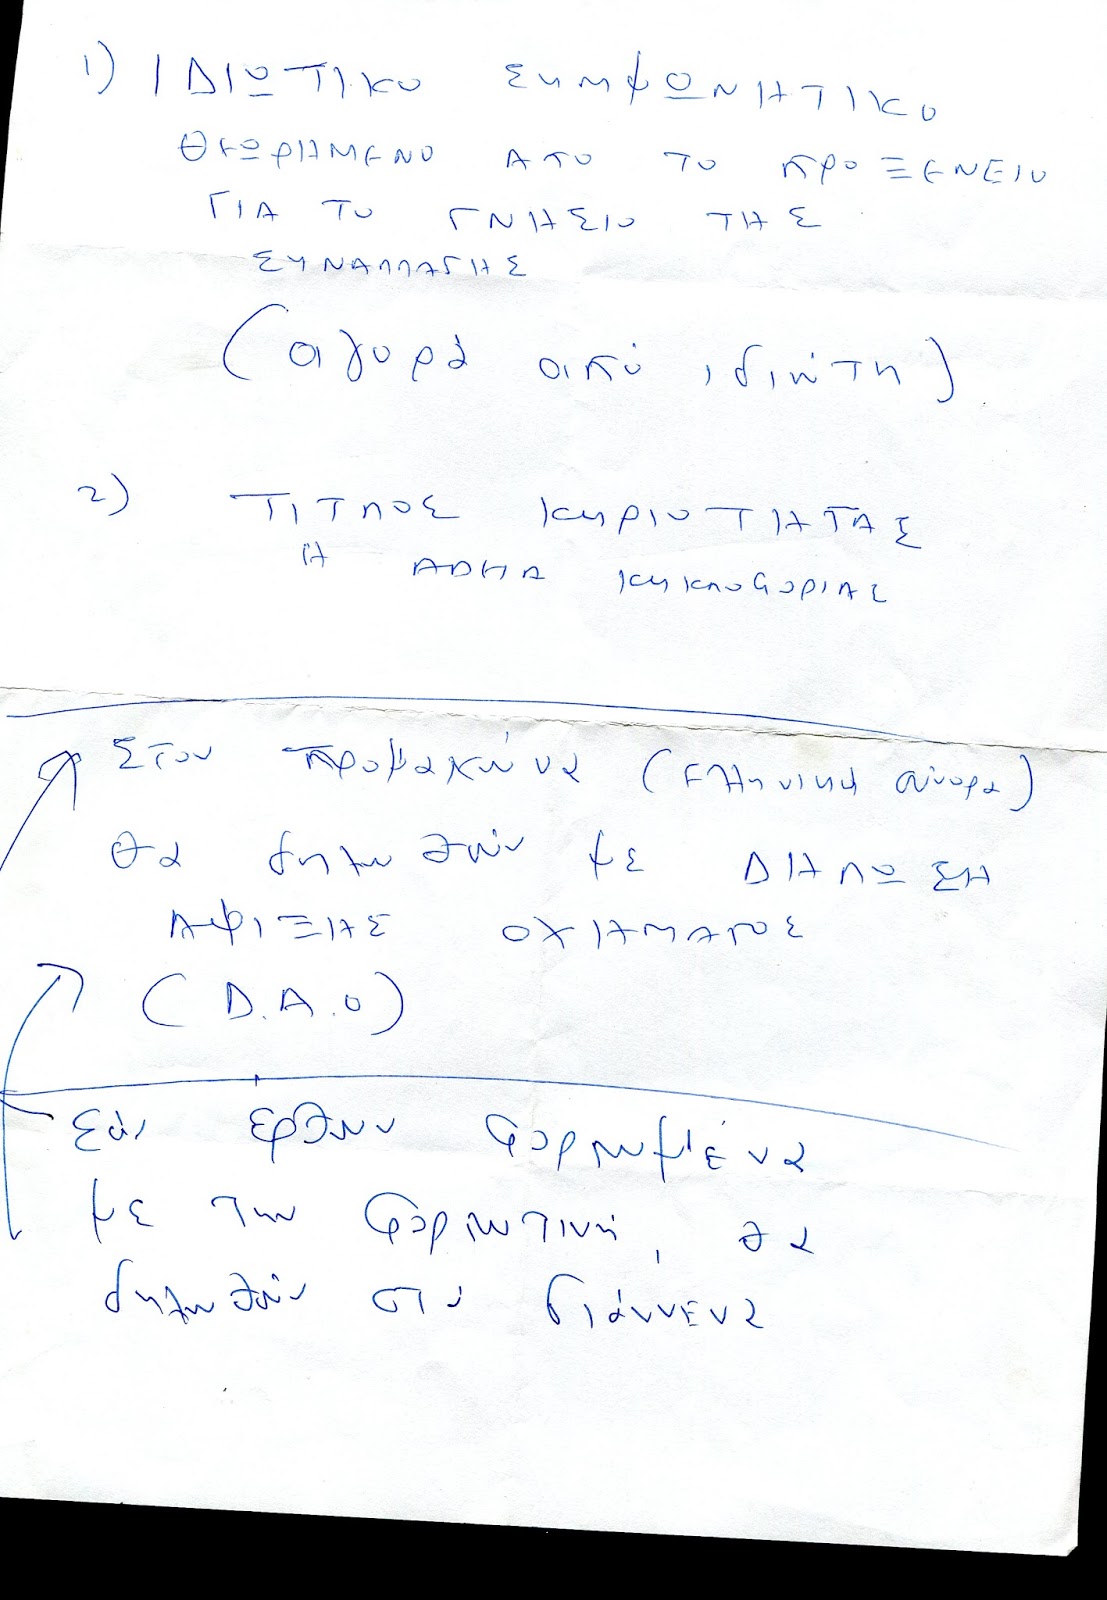 1) ΙΔΙΩΤΙΚΟ ΣΥΜΦΩΝΗΤΙΚΟ
ΘΕΩΡΗΜΕΝΟ ΑΠΟ ΤΟ ΠΡΟΞΕΝΕΙΟ
ΓΙΑ ΤΟ ΓΝΗΣΙΟ ΤΗΣ
ΣΥΝΑΛΛΑΓΗΣ
(αγορά από ιδιώτη)
2) ΤΙΤΛΟΣ ΚΥΡΙΟΤΗΤΑΣ
Η ΑΔΕΙΑ ΚΥΚΛΟΦΟΡΙΑΣ
Στον Προμαχώνα (Ελληνικά σύνορα)
θα δηλωθούν με ΔΗΛΩΣΗ
ΑΦΙΞΗΣ ΟΧΗΜΑΤΟΣ
(D.A.O)
Εάν έρθουν φορτωμένα
με την φορτωτική, θα
δηλωθούν στο